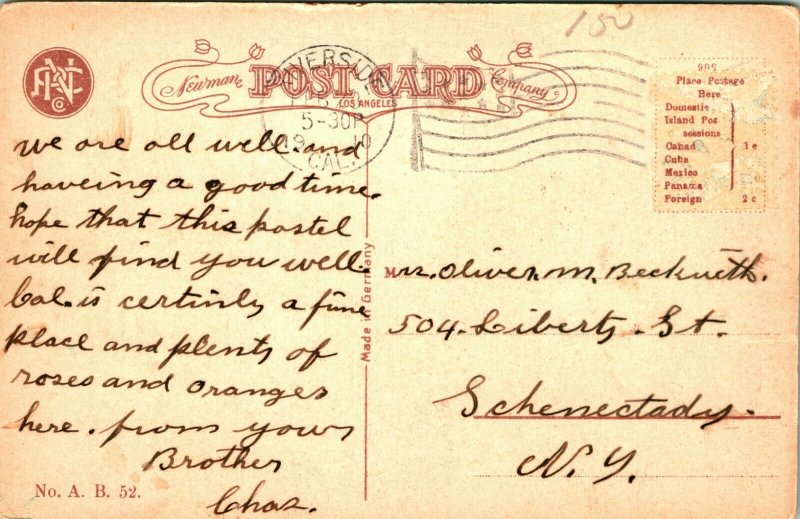 150
Newman POST CARD Company
LOS ANGELES
RIVERSIDE
5-30P
1910
CAL.
909
Place Postage
Here
Domestic
Island Pos
sessions
Canad 1 c
Cuba
Mexico
Panama
Foreign 2 c
we are all well and
haveing a good time.
hope that this postel
will find you well.
Cal. is certinly a fine
place and plenty of
roses and oranges
here. from your
Brother
Chas.
Made in Germany
Mrs. Oliver. M. Beckwith.
504. Liberty. St.
Schenectady.
N. Y.
No. A. B. 52.